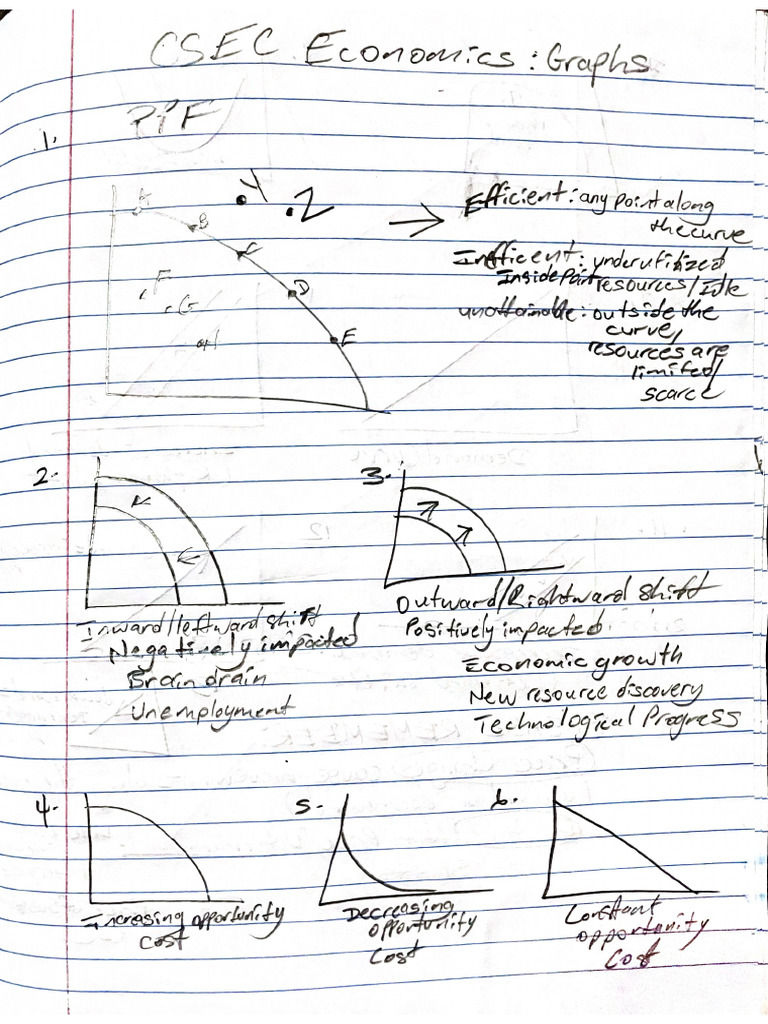 CSEC Economics: Graphs
1.
PPF
A
B
C
D
E
F
G
H
Y
Z
Efficient: any point along
the curve
Inefficent: underutilized
Inside point resources/Idle
unattainable: outside the
curve,
resources are
limited/
scarce
2.
Inward/leftward shift
Negatively impacted
Brain drain
Unemployment
3.
Outward/Rightward shift
Positively impacted
Economic growth
New resource discovery
Technological Progress
4.
Increasing opportunity
cost
5.
Decreasing
opportunity
Cost
6.
Constant
opportunity
Cost